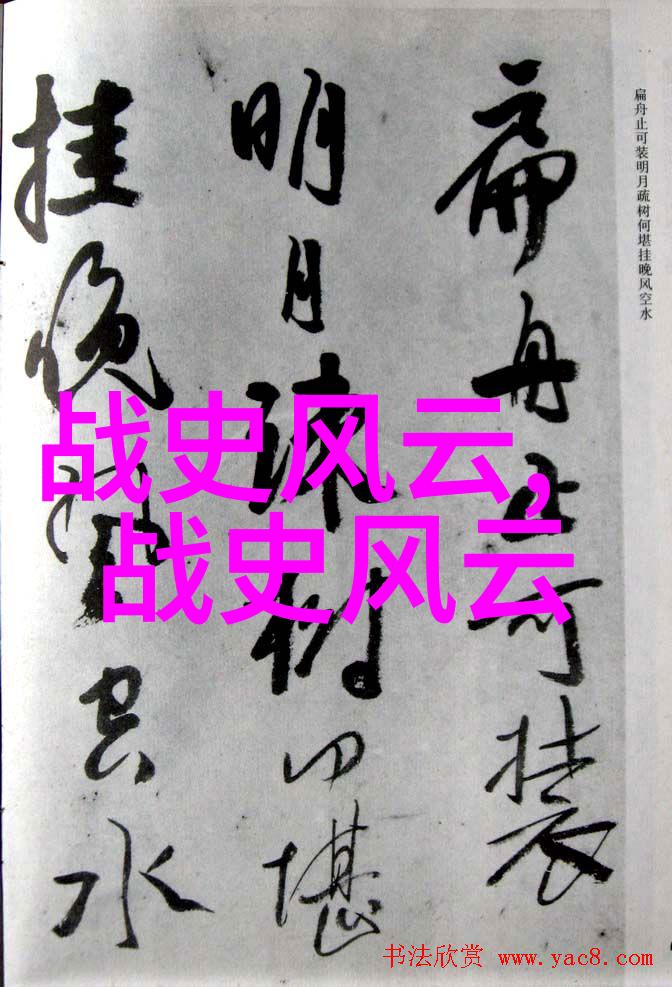 扁舟止可装
明月疏树何堪
挂晚风空水
扁舟止可装明月疏树何堪挂晚风空水
战史风云,
战史风云
书法欣赏 www.yac8.com